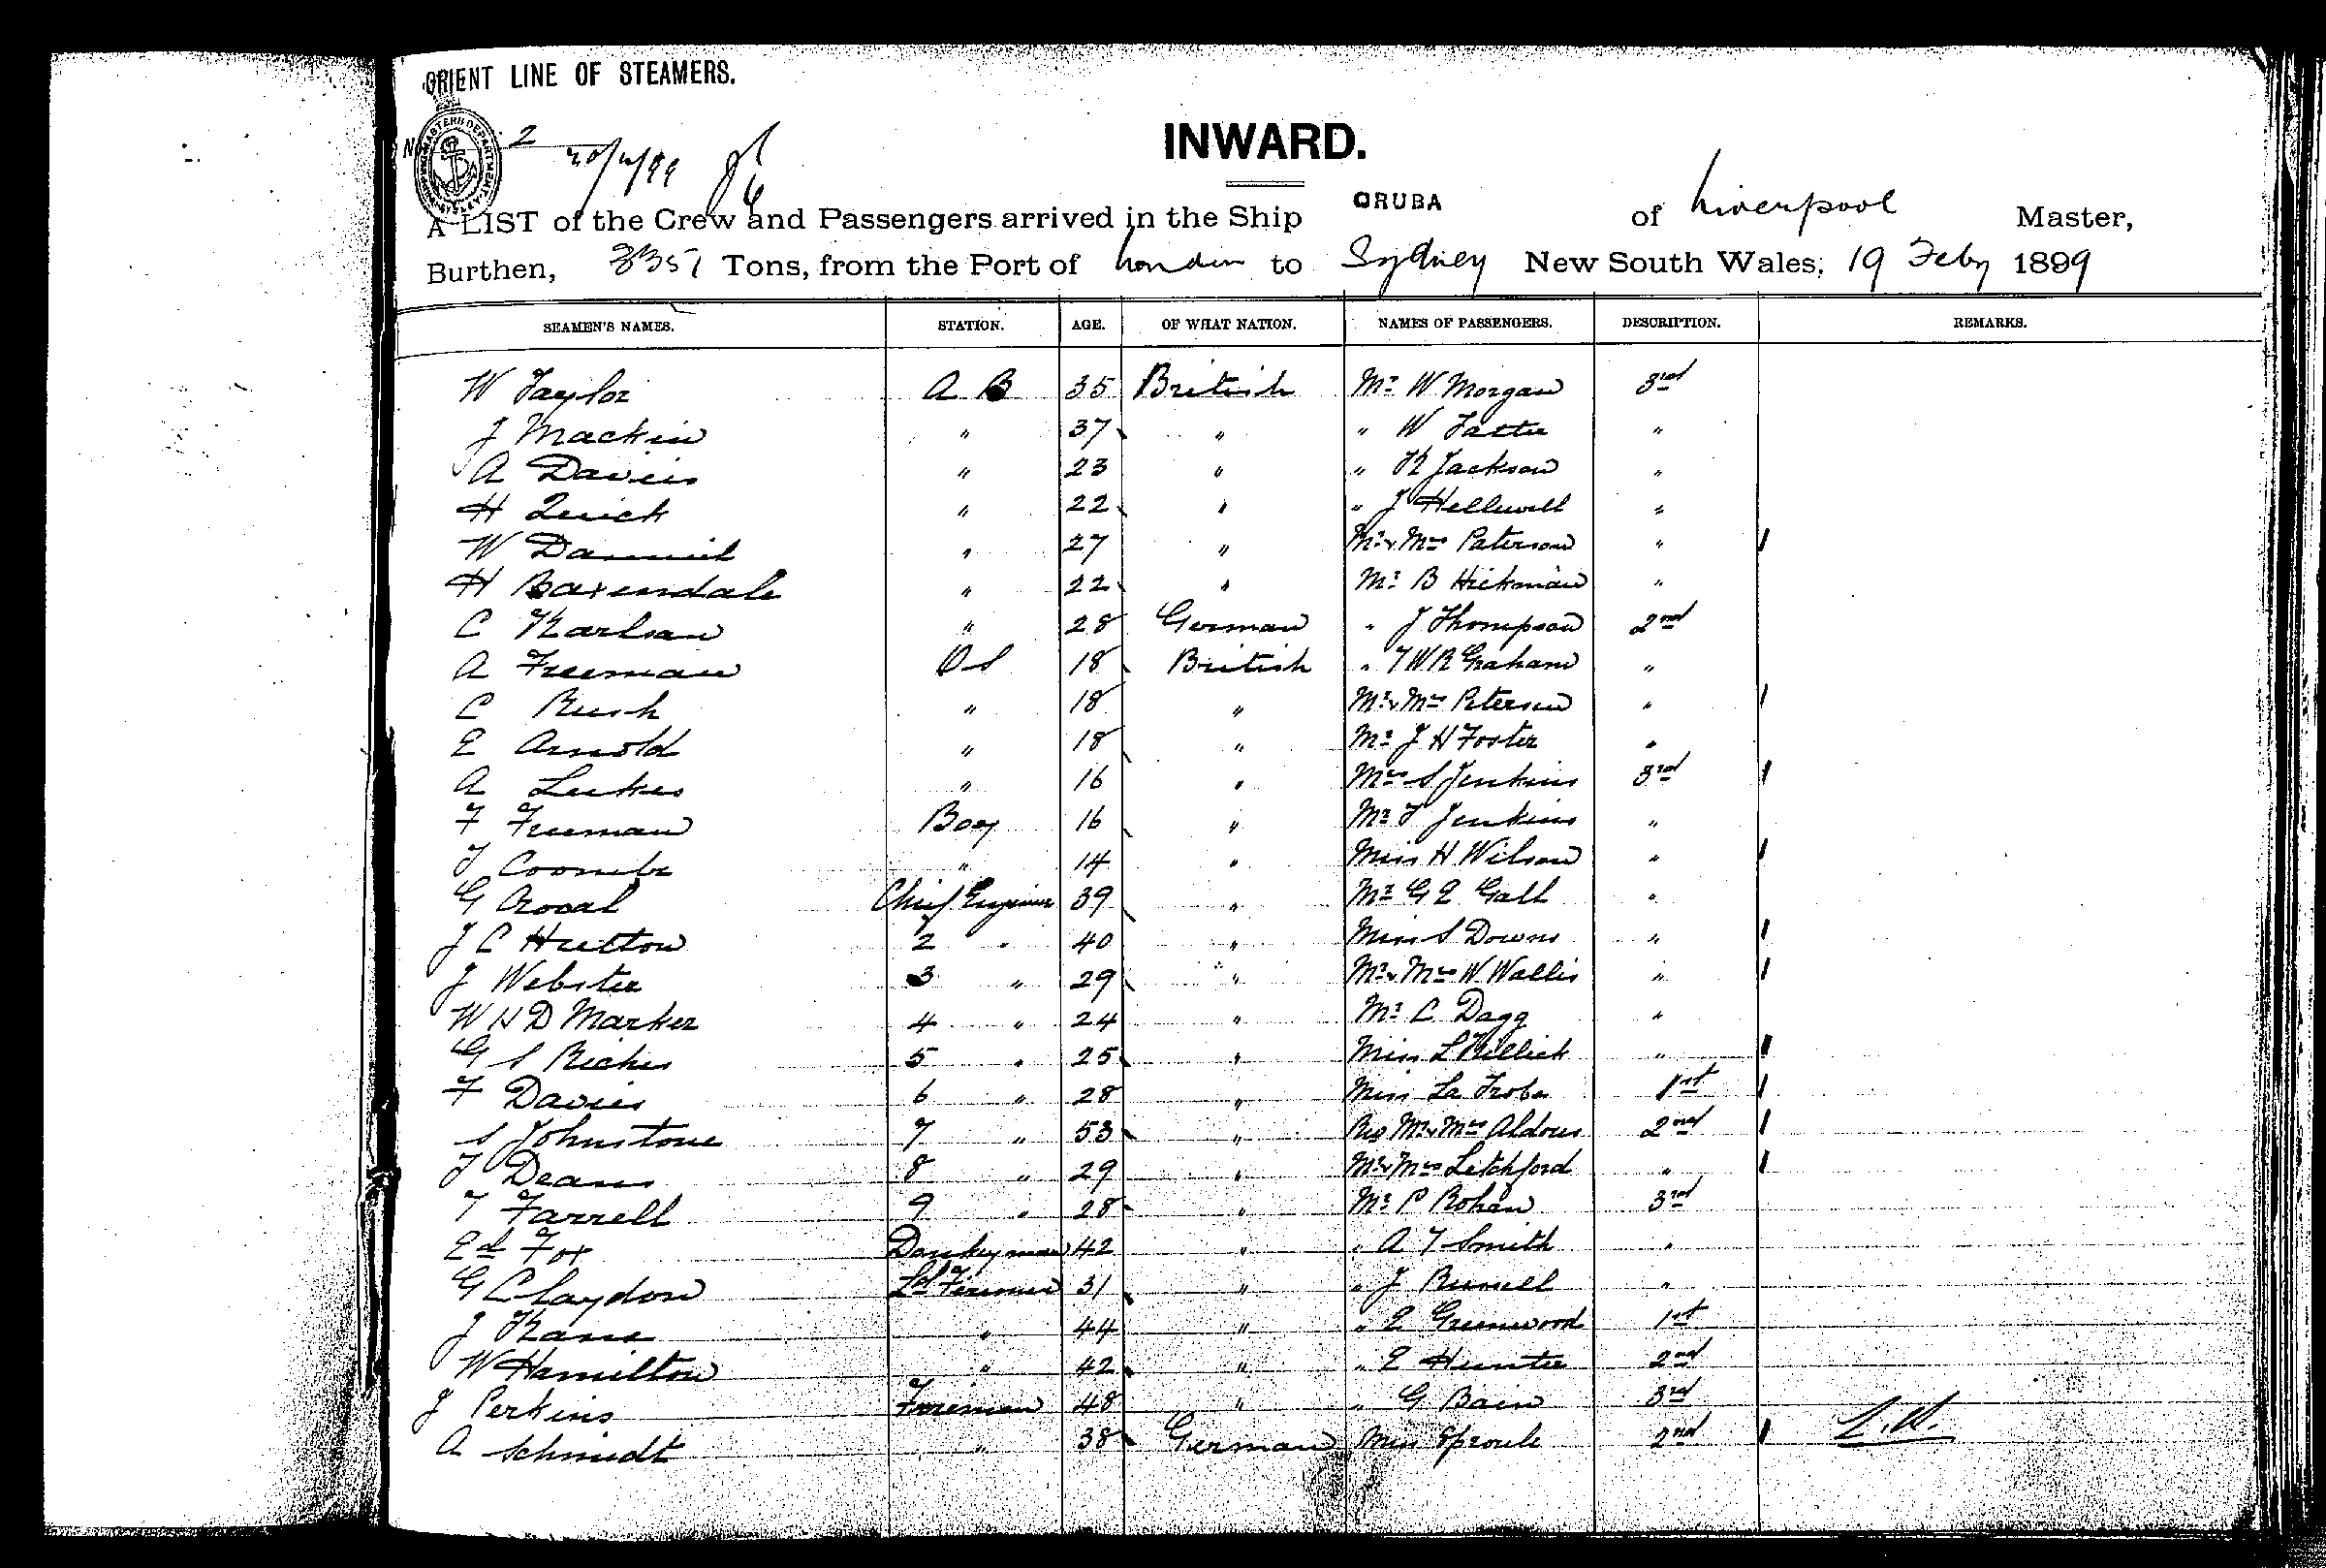 ORIENT LINE OF STEAMERS.
2
INWARD.
A LIST of the Crew and Passengers arrived in the Ship ORUBA of Liverpool Master,
Burthen, 3351 Tons, from the Port of London to Sydney New South Wales, 19 Feby 1899
SEAMEN'S NAMES. STATION. AGE. OF WHAT NATION. NAMES OF PASSENGERS. DESCRIPTION. REMARKS.
W Taylor A B 35 British Mr W Morgan 3rd
J Mackin " 37 " " W "
A Davies " 23 " " Jackson "
H Quick " 22 " " J Helliwell "
W Danniel " 27 " Mr & Mrs Paterson "
H Baxendale " 22 " Mr B Hickman "
C Karlsan " 28 German " J Thompson 2nd
A Freeman O S 18 British " T W R Graham "
C Rush " 18 " Mr & Mrs Petersen "
E Arnold " 18 " Mr J H Foster "
A Luckes " 16 " Mrs S Jenkins 3rd
F Freeman Boy 16 " Mr T Jenkins "
T Coombe " 14 " Miss H Wilson "
G Chief Engineer 39 " Mr G E Gall "
J C Hutton 2 " 40 " Miss S Downs "
J Webster 3 " 29 " Mr & Mrs W Wallis "
W H D Marker 4 " 24 " Mr C Dagg "
G S Riches 5 " 25 " Miss L Killick "
F Davies 6 " 28 " Miss La Trobe 1st
S Johnstone 7 " 53 " Rev Mr & Mrs Aldous 2nd
T Deans 8 " 29 " Mr & Mrs Letchford "
T Farrell 9 " 28 " Mr P Rohan 3rd
Ed Fox Donkeyman 42 " " A T Smith "
G Claydon Ld Firemen 31 " " J Russell "
J Kane " 44 " " E Greenwood 1st
W Hamilton " 42 " " E Hunter 2nd
J Perkins Fireman 48 " " G Bain 3rd
A Schmidt " 38 German Miss Sproule 2nd